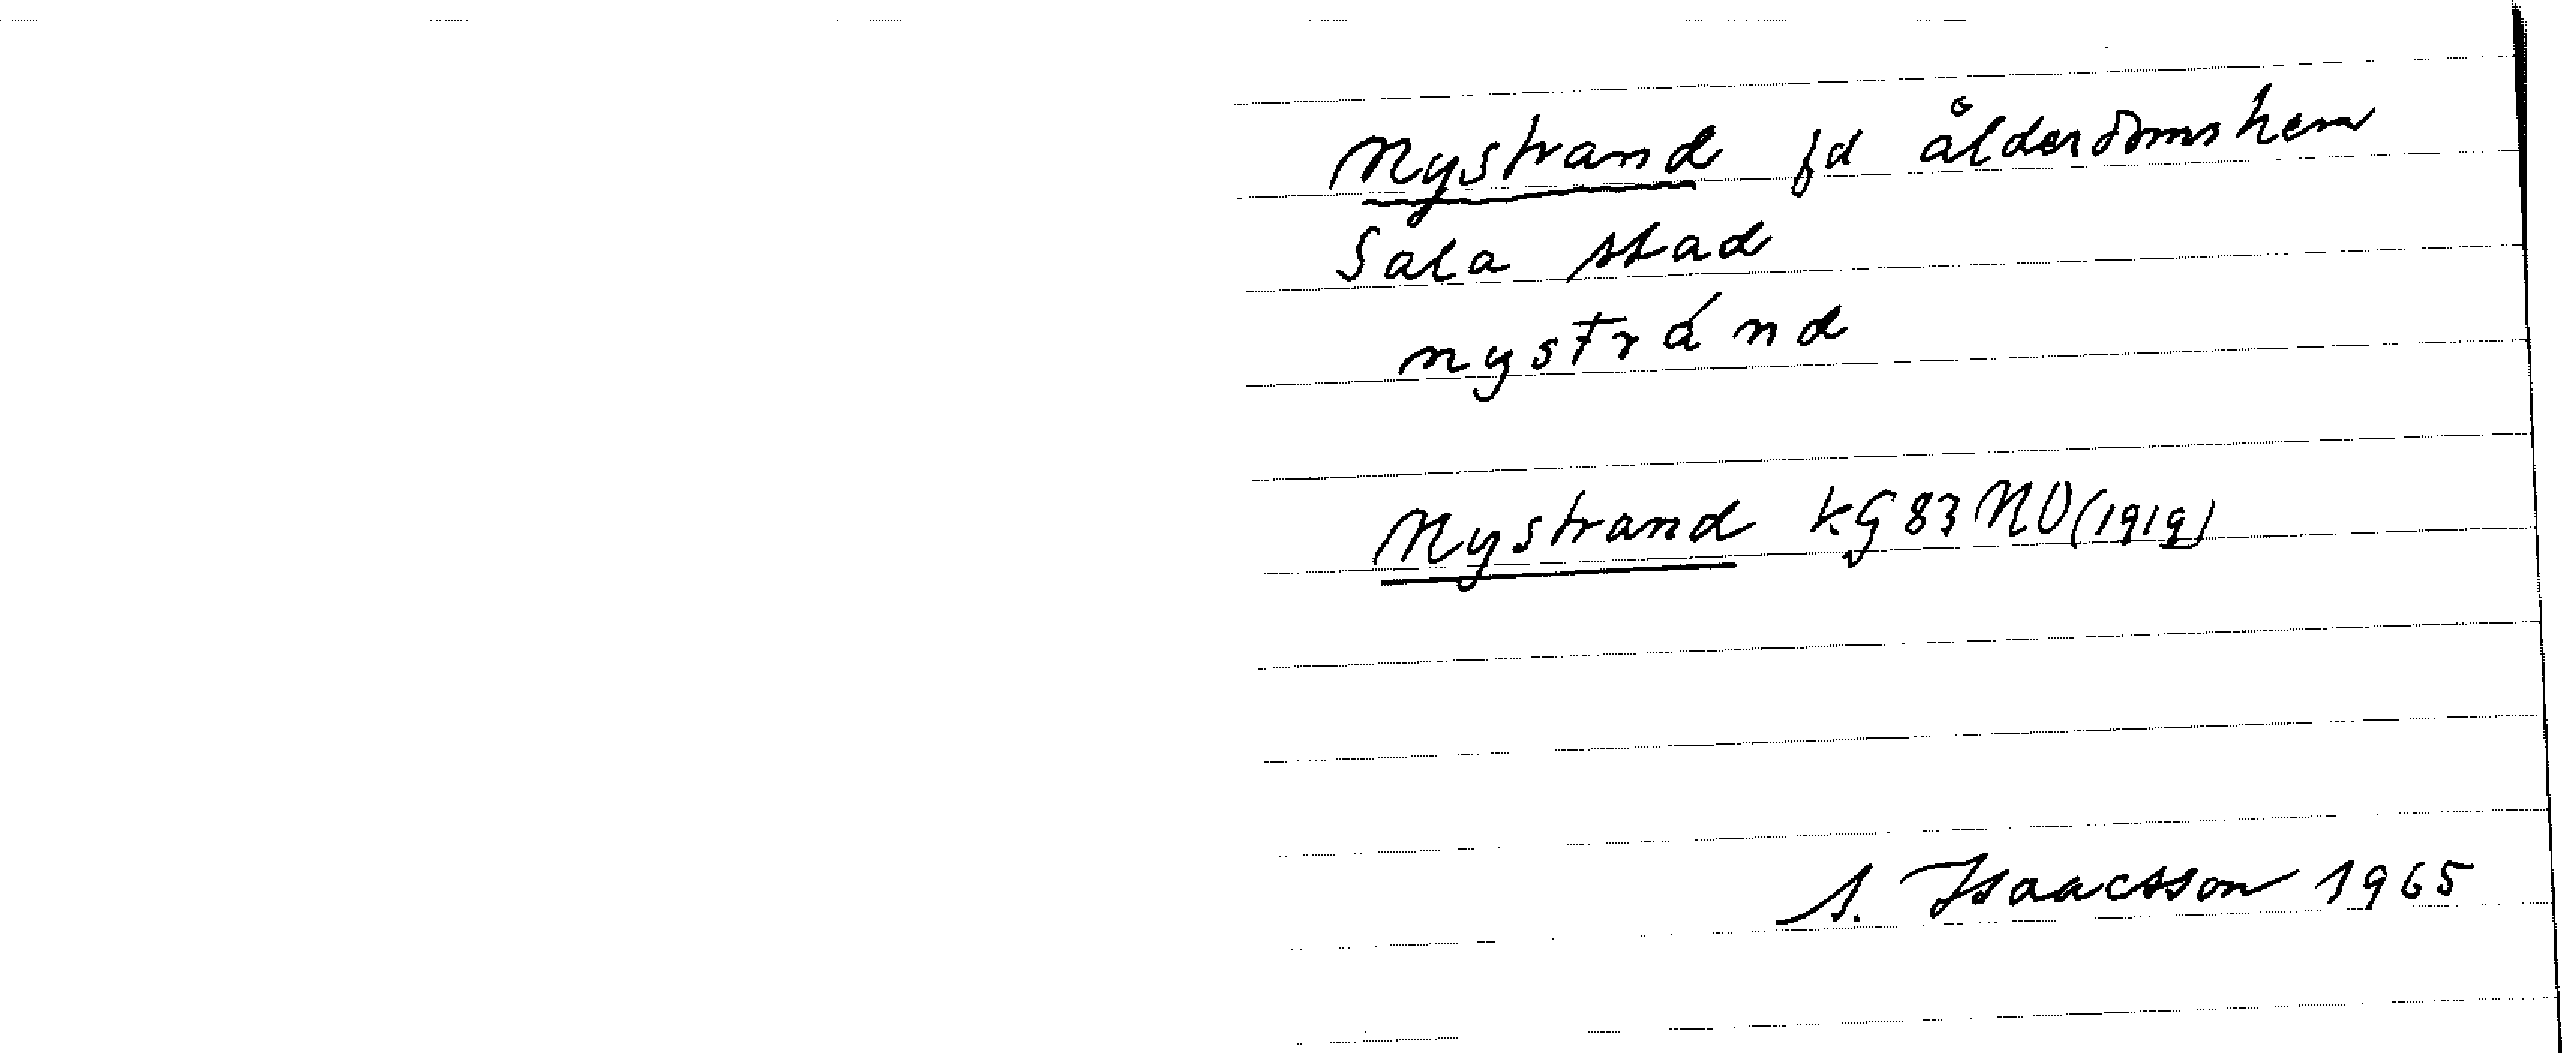 Nystrand fd ålderdomshem
Sala stad
nystránd
Nystrand kg 83 NO (1919)
S. Isaacsson 1965